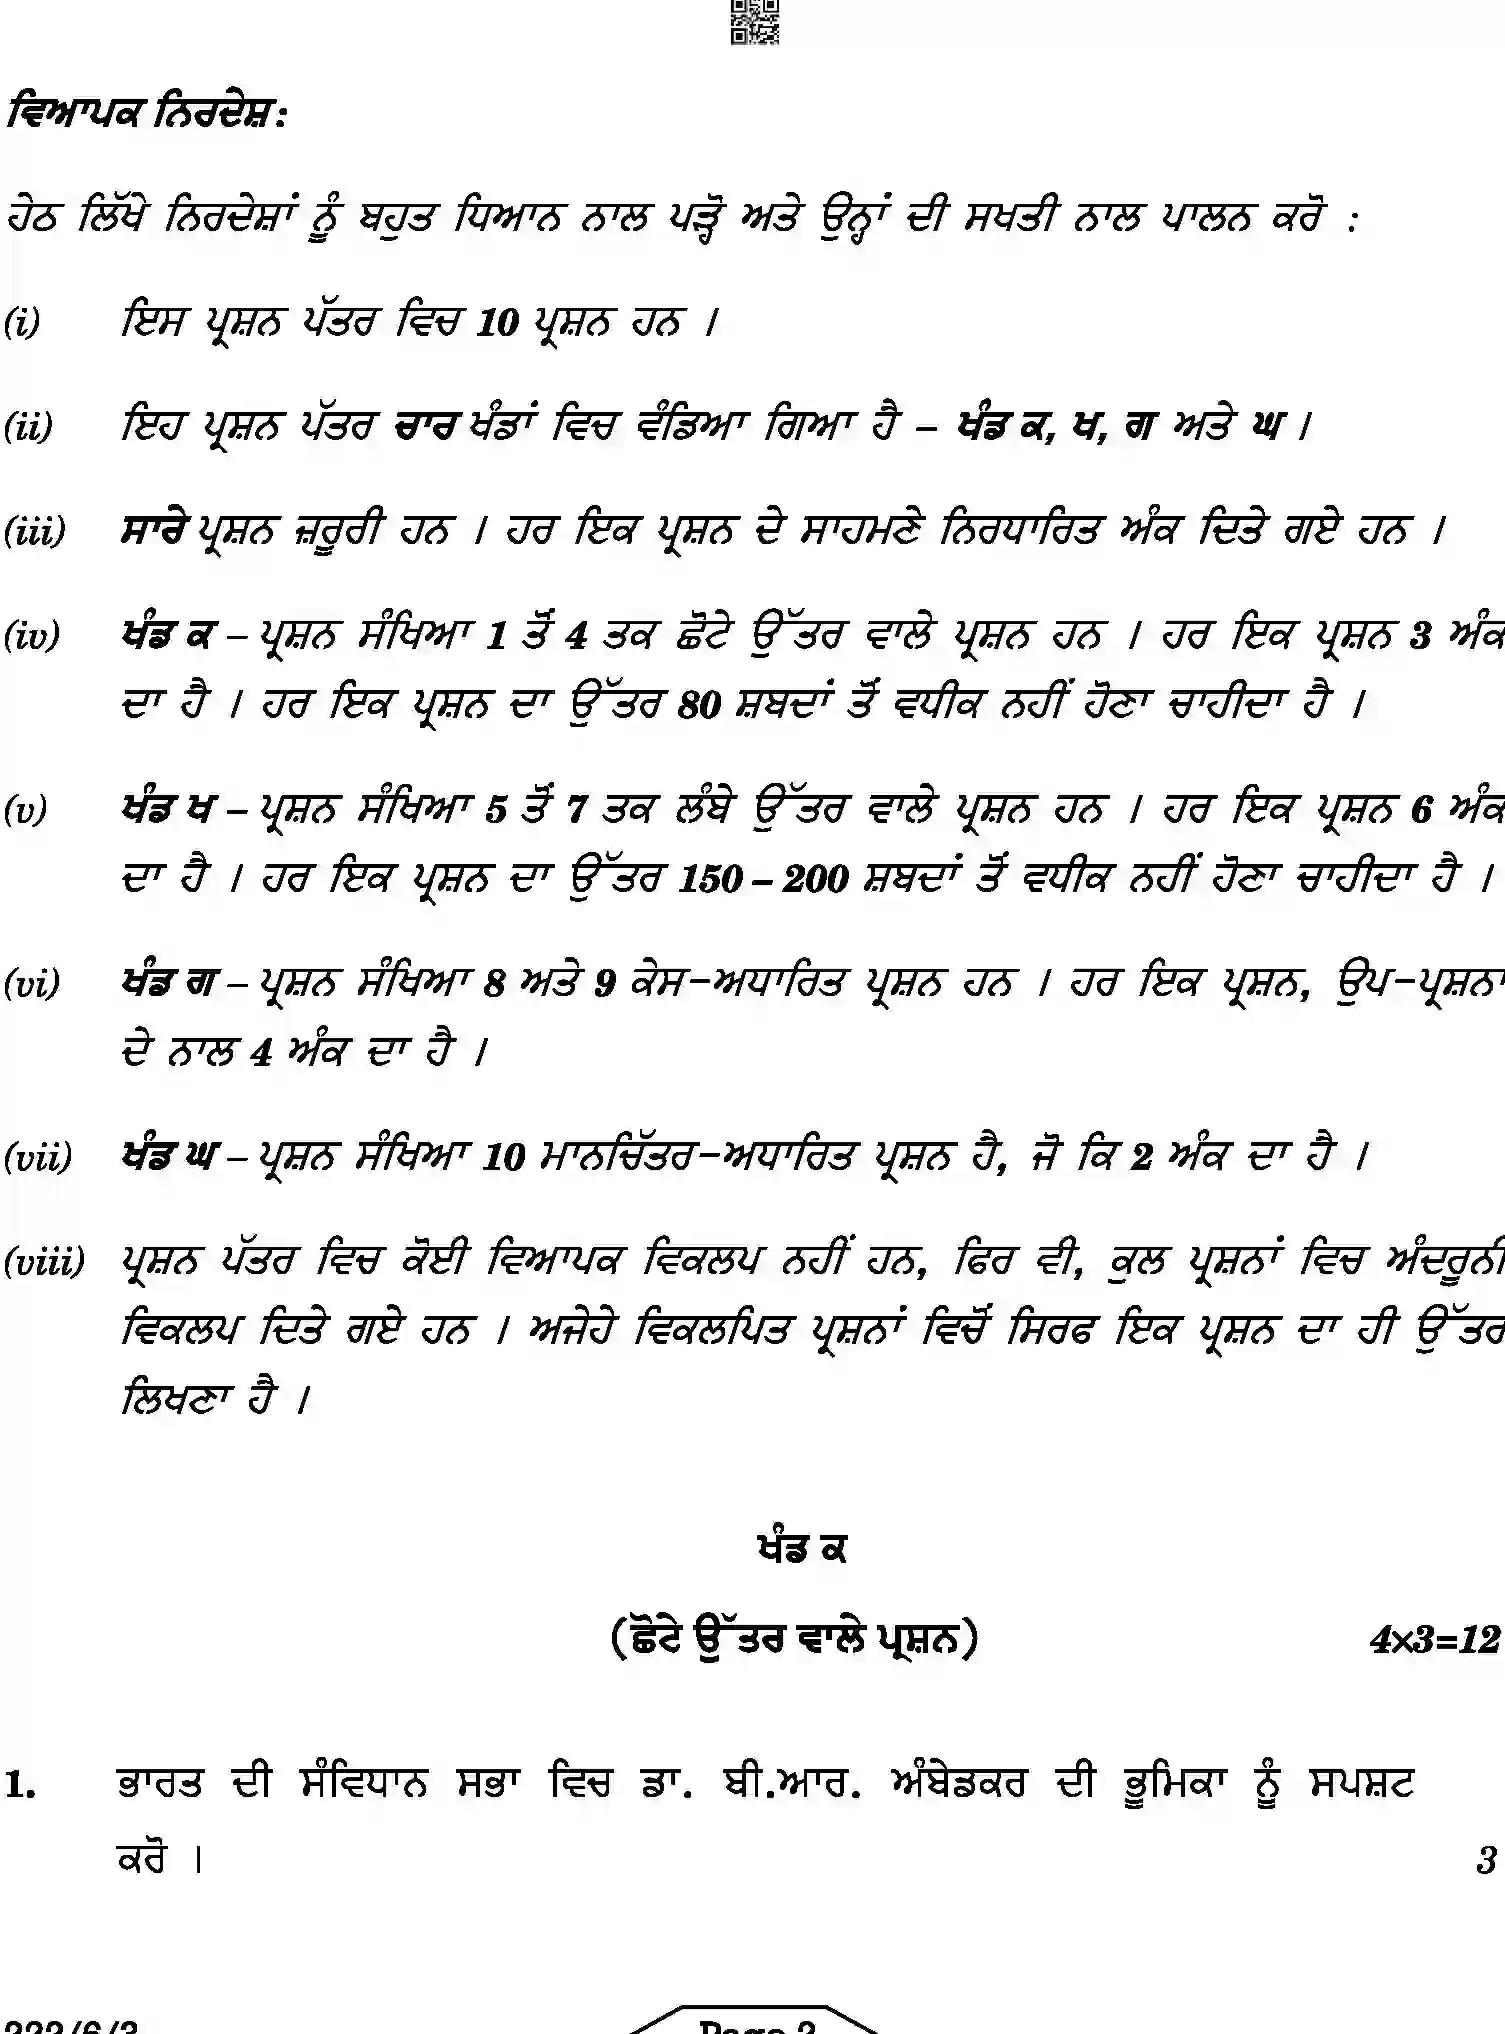 ਵਿਆਪਕ ਨਿਰਦੇਸ਼ :
ਹੇਠ ਲਿੱਖੇ ਨਿਰਦੇਸ਼ਾਂ ਨੂੰ ਬਹੁਤ ਧਿਆਨ ਨਾਲ ਪੜ੍ਹੋ ਅਤੇ ਉਨ੍ਹਾਂ ਦੀ ਸਖਤੀ ਨਾਲ ਪਾਲਨ ਕਰੋ :
(i) ਇਸ ਪ੍ਰਸ਼ਨ ਪੱਤਰ ਵਿਚ 10 ਪ੍ਰਸ਼ਨ ਹਨ ।
(ii) ਇਹ ਪ੍ਰਸ਼ਨ ਪੱਤਰ ਚਾਰ ਖੰਡਾਂ ਵਿਚ ਵੰਡਿਆ ਗਿਆ ਹੈ – ਖੰਡ ਕ, ਖ, ਗ ਅਤੇ ਘ ।
(iii) ਸਾਰੇ ਪ੍ਰਸ਼ਨ ਜ਼ਰੂਰੀ ਹਨ । ਹਰ ਇਕ ਪ੍ਰਸ਼ਨ ਦੇ ਸਾਹਮਣੇ ਨਿਰਧਾਰਿਤ ਅੰਕ ਦਿਤੇ ਗਏ ਹਨ ।
(iv) ਖੰਡ ਕ – ਪ੍ਰਸ਼ਨ ਸੰਖਿਆ 1 ਤੋਂ 4 ਤਕ ਛੋਟੇ ਉੱਤਰ ਵਾਲੇ ਪ੍ਰਸ਼ਨ ਹਨ । ਹਰ ਇਕ ਪ੍ਰਸ਼ਨ 3 ਅੰਕ
ਦਾ ਹੈ । ਹਰ ਇਕ ਪ੍ਰਸ਼ਨ ਦਾ ਉੱਤਰ 80 ਸ਼ਬਦਾਂ ਤੋਂ ਵਧੀਕ ਨਹੀਂ ਹੋਣਾ ਚਾਹੀਦਾ ਹੈ ।
(v) ਖੰਡ ਖ – ਪ੍ਰਸ਼ਨ ਸੰਖਿਆ 5 ਤੋਂ 7 ਤਕ ਲੰਬੇ ਉੱਤਰ ਵਾਲੇ ਪ੍ਰਸ਼ਨ ਹਨ । ਹਰ ਇਕ ਪ੍ਰਸ਼ਨ 6 ਅੰਕ
ਦਾ ਹੈ । ਹਰ ਇਕ ਪ੍ਰਸ਼ਨ ਦਾ ਉੱਤਰ 150 – 200 ਸ਼ਬਦਾਂ ਤੋਂ ਵਧੀਕ ਨਹੀਂ ਹੋਣਾ ਚਾਹੀਦਾ ਹੈ ।
(vi) ਖੰਡ ਗ – ਪ੍ਰਸ਼ਨ ਸੰਖਿਆ 8 ਅਤੇ 9 ਕੇਸ-ਅਧਾਰਿਤ ਪ੍ਰਸ਼ਨ ਹਨ । ਹਰ ਇਕ ਪ੍ਰਸ਼ਨ, ਉਪ-ਪ੍ਰਸ਼ਨਾ
ਦੇ ਨਾਲ 4 ਅੰਕ ਦਾ ਹੈ ।
(vii) ਖੰਡ ਘ – ਪ੍ਰਸ਼ਨ ਸੰਖਿਆ 10 ਮਾਨਚਿੱਤਰ-ਅਧਾਰਿਤ ਪ੍ਰਸ਼ਨ ਹੈ, ਜੋ ਕਿ 2 ਅੰਕ ਦਾ ਹੈ ।
(viii) ਪ੍ਰਸ਼ਨ ਪੱਤਰ ਵਿਚ ਕੋਈ ਵਿਆਪਕ ਵਿਕਲਪ ਨਹੀਂ ਹਨ, ਫਿਰ ਵੀ, ਕੁਲ ਪ੍ਰਸ਼ਨਾਂ ਵਿਚ ਅੰਦਰੂਨੀ
ਵਿਕਲਪ ਦਿਤੇ ਗਏ ਹਨ । ਅਜੇਹੇ ਵਿਕਲਪਿਤ ਪ੍ਰਸ਼ਨਾਂ ਵਿਚੋਂ ਸਿਰਫ ਇਕ ਪ੍ਰਸ਼ਨ ਦਾ ਹੀ ਉੱਤਰ
ਲਿਖਣਾ ਹੈ ।
ਖੰਡ ਕ
(ਛੋਟੇ ਉੱਤਰ ਵਾਲੇ ਪ੍ਰਸ਼ਨ) 4×3=12
1. ਭਾਰਤ ਦੀ ਸੰਵਿਧਾਨ ਸਭਾ ਵਿਚ ਡਾ. ਬੀ.ਆਰ. ਅੰਬੇਡਕਰ ਦੀ ਭੂਮਿਕਾ ਨੂੰ ਸਪਸ਼ਟ
ਕਰੋ । 3